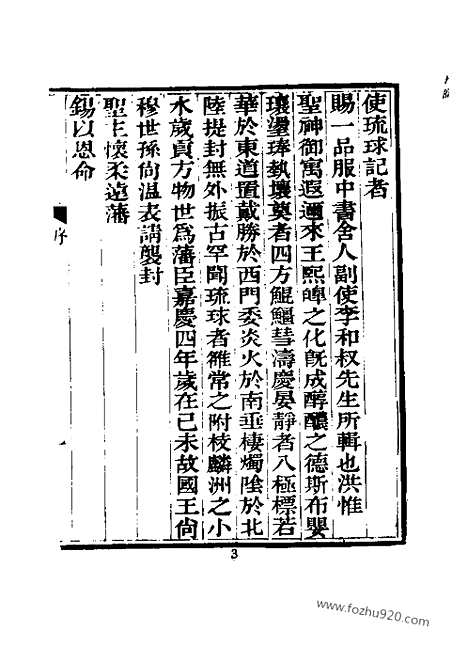 使琉球記者
賜一品服中書舍人副使李和叔先生所輯也洪惟
聖神御寓遐邇來王熙皥之化旣成醇醲之德斯布嬰
瓌璗琫執壤奠者四方鯤鱷彗濤慶晏靜者八極標若
華於東道置戴勝於西門委炎火於南垂棲燭陰於北
陸提封無外振古罕聞琉球者雒常之附枝麟洲之小
水歲貢方物世爲藩臣嘉慶四年歲在己未故國王尙
穆世孫尙温表請襲封
聖主懷柔遠藩
錫以恩命
序
3
www.fozhu920.com